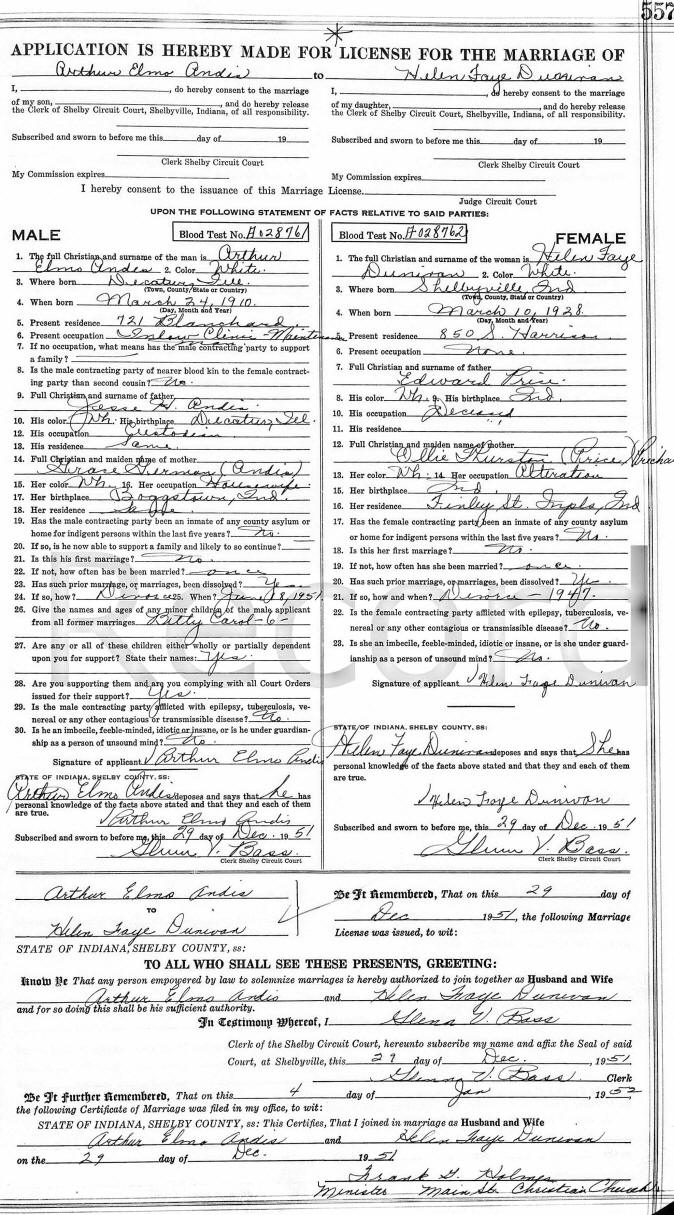 557
APPLICATION IS HEREBY MADE FOR LICENSE FOR THE MARRIAGE OF
Arthur Elmo Andis to Helen Faye Dunivan
I, , do hereby consent to the marriage
of my son, , and do hereby release
the Clerk of Shelby Circuit Court, Shelbyville, Indiana, of all responsibility.
Subscribed and sworn to before me this day of 19
Clerk Shelby Circuit Court
My Commission expires
I, , do hereby consent to the marriage
of my daughter, , and do hereby release
the Clerk of Shelby Circuit Court, Shelbyville, Indiana, of all responsibility.
Subscribed and sworn to before me this day of 19
Clerk Shelby Circuit Court
My Commission expires
I hereby consent to the issuance of this Marriage License.
Judge Circuit Court
UPON THE FOLLOWING STATEMENT OF FACTS RELATIVE TO SAID PARTIES:
MALE Blood Test No. A028761
1. The full Christian and surname of the man is Arthur
Elmo Andis 2. Color White.
3. Where born Decatur, Ill.
(Town, County/State or Country)
4. When born March 24, 1910.
(Day, Month and Year)
5. Present residence 721 Blanchard
6. Present occupation Inlow Clinic - Maintenance
man
7. If no occupation, what means has the male contracting party to support
a family?
8. Is the male contracting party of nearer blood kin to the female contract-
ing party than second cousin? No.
9. Full Christian and surname of father
Jesse H. Andis
10. His color Wh. His birthplace Decatur, Ill.
12. His occupation Custodian
13. His residence Same.
14. Full Christian and maiden name of mother
Grace Sherman (Andis)
15. Her color Wh. 16. Her occupation Housewife
17. Her birthplace Boggstown, Ind.
18. Her residence Same
19. Has the male contracting party been an inmate of any county asylum or
home for indigent persons within the last five years? No.
20. If so, is he now able to support a family and likely to so continue?
21. Is this his first marriage? No.
22. If not, how often has he been married? once
23. Has such prior marriage, or marriages, been dissolved? Yes.
24. If so, how? Divorce 25. When? June 8, 1951
26. Give the names and ages of any minor children of the male applicant
from all former marriages. Patty Carol - 6 -
27. Are any or all of these children either wholly or partially dependent
upon you for support? State their names: Yes.
28. Are you supporting them and are you complying with all Court Orders
issued for their support? Yes.
29. Is the male contracting party afflicted with epilepsy, tuberculosis, ve-
nereal or any other contagious or transmissible disease? No.
30. Is he an imbecile, feeble-minded, idiotic or insane, or is he under guardian-
ship as a person of unsound mind? No.
Signature of applicant Arthur Elmo Andis
STATE OF INDIANA, SHELBY COUNTY, ss:
Arthur Elmo Andis deposes and says that he has
personal knowledge of the facts above stated and that they and each of them
are true.
Arthur Elmo Andis
Subscribed and sworn to before me, this 29 day of Dec. 1951
Glenn V. Bass
Clerk Shelby Circuit Court
Blood Test No. A028762 FEMALE
1. The full Christian and surname of the woman is Helen Faye
Dunivan 2. Color White.
3. Where born Shelbyville, Ind
(Town, County, State or Country)
4. When born March 10, 1928
(Day, Month and Year)
5. Present residence 850 S. Harrison
6. Present occupation None.
7. Full Christian and surname of father
Edward Price
8. His color Wh 9. His birthplace Ind.
10. His occupation Deceased
11. His residence
12. Full Christian and maiden name of mother
Ollie Thurston (Price)
13. Her color Wh 14. Her occupation Alteration
15. Her birthplace Ind.
16. Her residence Finley St. Inpls, Ind
17. Has the female contracting party been an inmate of any county asylum
or home for indigent persons within the last five years? No.
18. Is this her first marriage? No.
19. If not, how often has she been married? once.
20. Has such prior marriage, or marriages, been dissolved? Yes
21. If so, how and when? Divorce - 1947.
22. Is the female contracting party afflicted with epilepsy, tuberculosis, ve-
nereal or any other contagious or transmissible disease? No.
23. Is she an imbecile, feeble-minded, idiotic or insane, or is she under guard-
ianship as a person of unsound mind? No.
Signature of applicant Helen Faye Dunivan
STATE OF INDIANA, SHELBY COUNTY, ss:
Helen Faye Dunivan deposes and says that She has
personal knowledge of the facts above stated and that they and each of them
are true.
Helen Faye Dunivan
Subscribed and sworn to before me, this 29 day of Dec. 1951
Glenn V. Bass
Clerk Shelby Circuit Court
Record
Arthur Elmo Andis
TO
Helen Faye Dunivan
STATE OF INDIANA, SHELBY COUNTY, ss:
Be It Remembered, That on this 29 day of
Dec 1951, the following Marriage
License was issued, to wit:
TO ALL WHO SHALL SEE THESE PRESENTS, GREETING:
Know Ye That any person empowered by law to solemnize marriages is hereby authorized to join together as Husband and Wife
Arthur Elmo Andis and Helen Faye Dunivan
and for so doing this shall be his sufficient authority.
In Testimony Whereof, I Glenn V. Bass
Clerk of the Shelby Circuit Court, hereunto subscribe my name and affix the Seal of said
Court, at Shelbyville, this 29 day of Dec. , 1951
Glenn V. Bass Clerk
Be It Further Remembered, That on this 4 day of Jan , 1952
the following Certificate of Marriage was filed in my office, to wit:
STATE OF INDIANA, SHELBY COUNTY, ss: This Certifies, That I joined in marriage as Husband and Wife
Arthur Elmo Andis and Helen Faye Dunivan
on the 29 day of Dec. 1951
Frank G. Holmes
Minister Main St. Christian Church